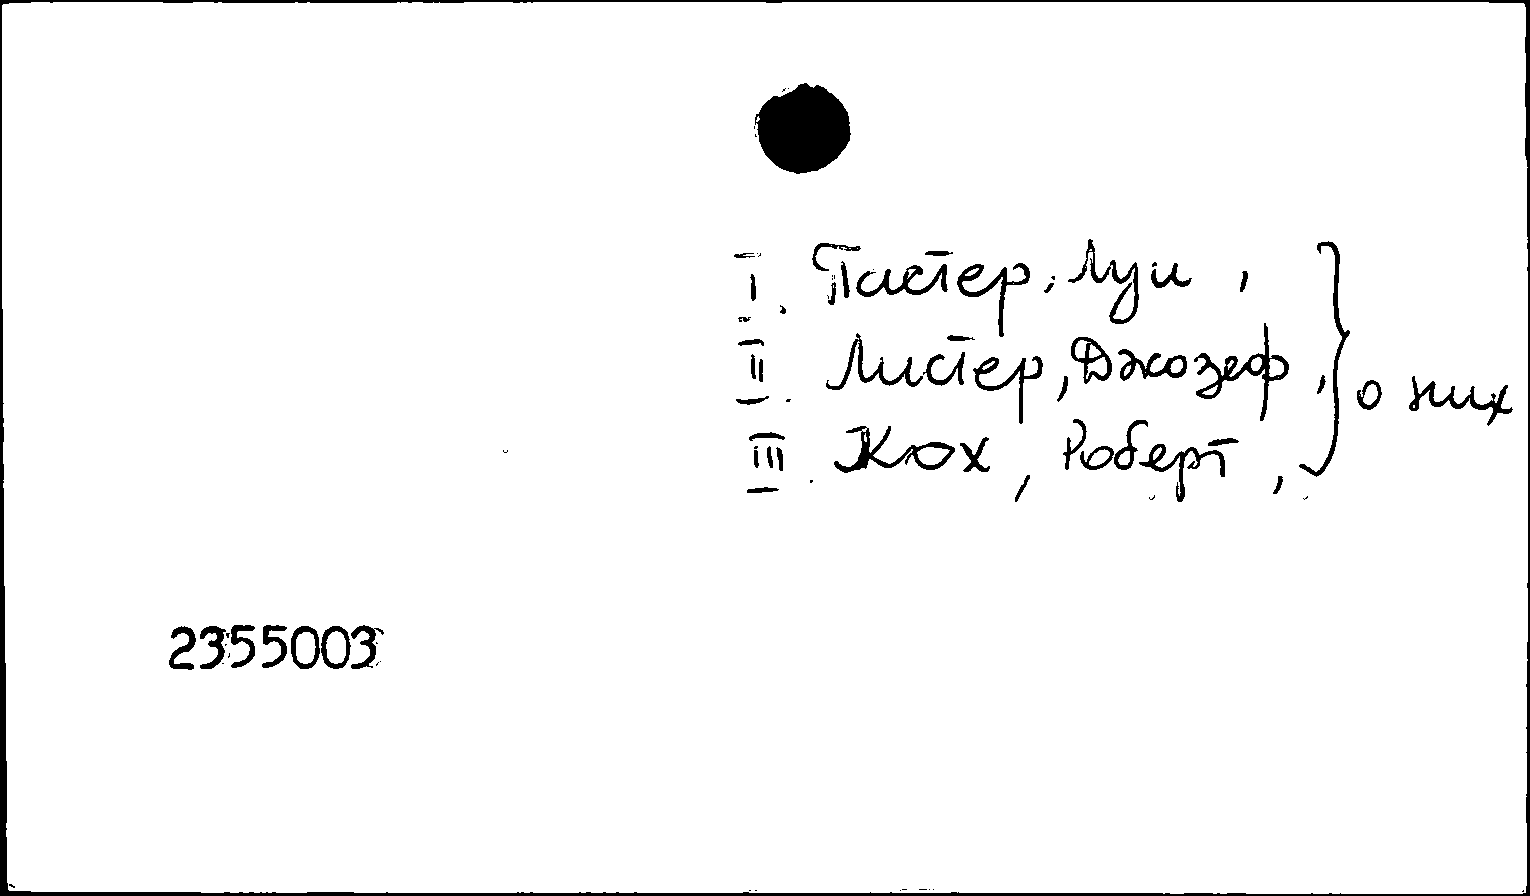 I. Пастер, Луи,
II. Листер, Джозеф, } о них
III. Кох, Роберт,
2355003